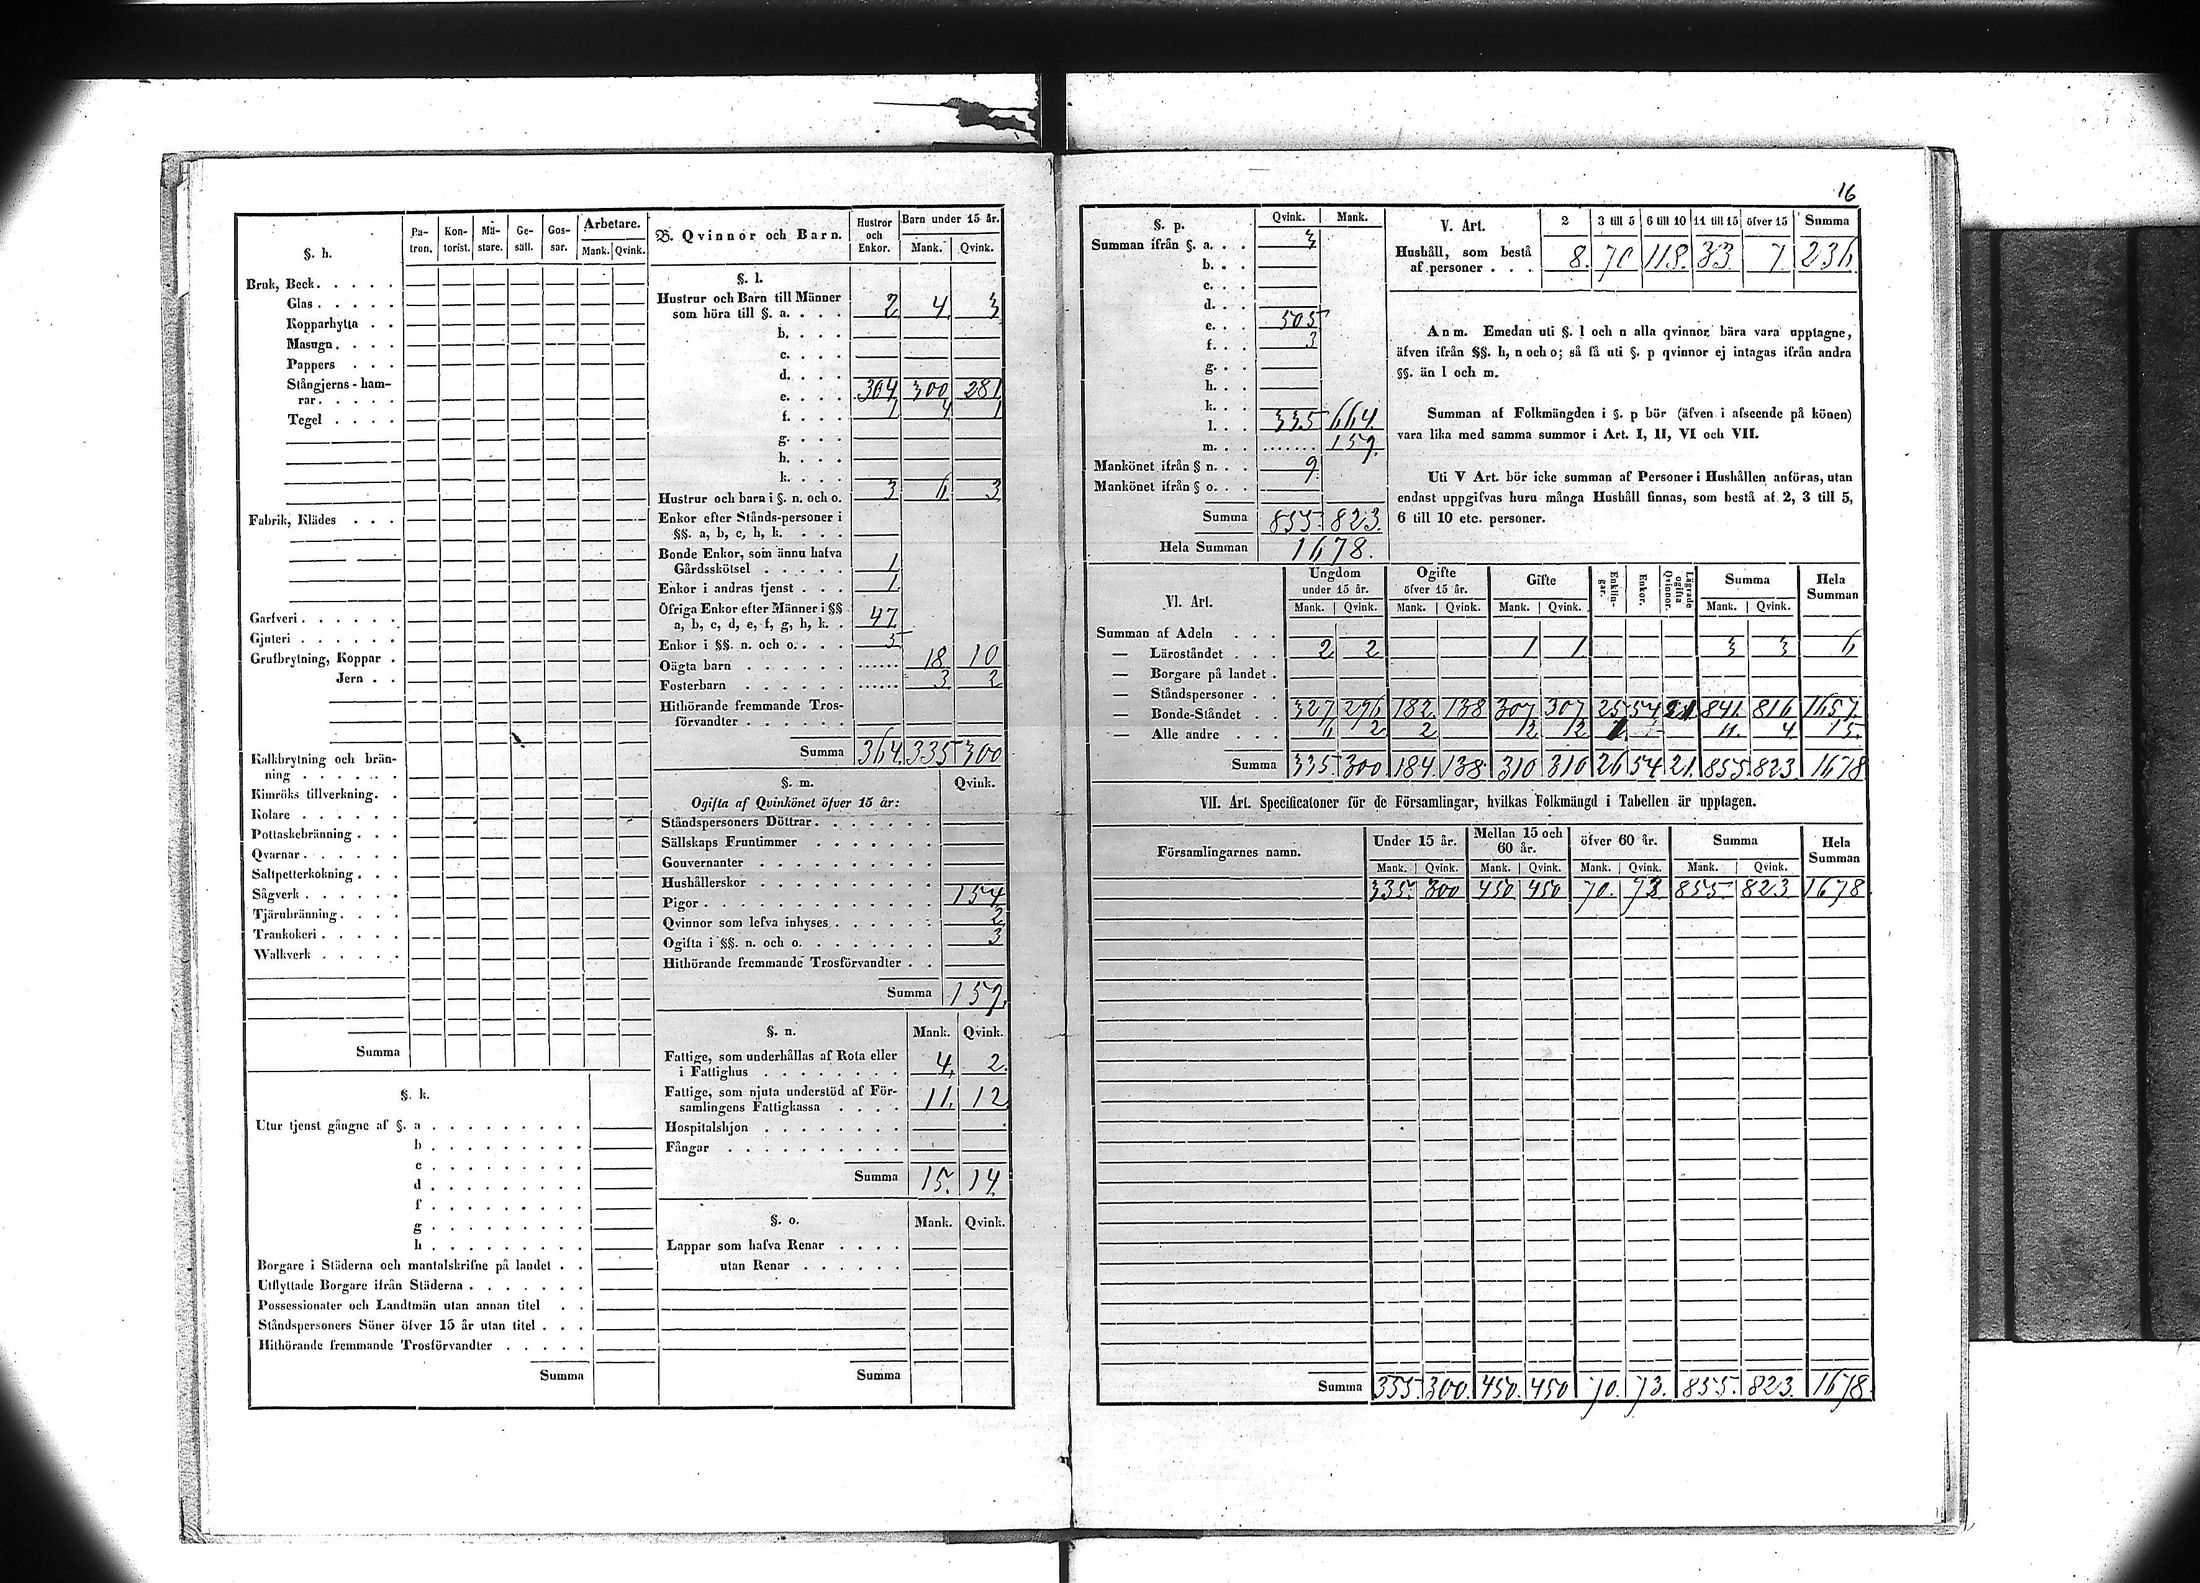 16
§. h.
Pa-tron. Kon-torist. Mä-stare. Ge-säll. Gos-sar. Arbetare.
Mank. Qvink.
Bruk, Beck
Glas
Kopparhytta
Masugn
Pappers
Stångjerns-ham-
rar
Tegel
Fabrik, Klädes
Garfveri
Gjuteri
Grufbrytning, Koppar
Jern
Kalkbrytning och brän-
ning
Kimröks tillverkning
Kolare
Pottaskebränning
Qvarnar
Saltpetterkokning
Sågverk
Tjärubränning
Trankokeri
Walkverk
Summa
§. k.
Utur tjenst gångne af §. a
b
c
d
f
g
h
Borgare i Städerna och mantalskrifne på landet
Utflyttade Borgare ifrån Städerna
Possessionater och Landtmän utan annan titel
Ståndspersoners Söner öfver 15 år utan titel
Hithörande fremmande Trosförvandter
Summa
B. Qvinnor och Barn. Hustror och Enkor. Barn under 15 år.
Mank. Qvink.
§. l.
Hustrur och Barn till Männer
som höra till §. a. 2 4 3
b.
c.
d.
e. 304 300 281
f. 1 4 1
g.
h.
k.
Hustrur och barn i §. n. och o. 3 6 3
Enkor efter Stånds-personer i
§§. a, b, c, h, k.
Bonde Enkor, som ännu hafva
Gårdsskötsel 1
Enkor i andras tjenst 1
Öfriga Enkor efter Männer i §§
a, b, c, d, e, f, g, h, k. 47
Enkor i §§. n. och o. 5
Oägta barn 18 10
Fosterbarn 3 2
Hithörande fremmande Tros-
förvandter
Summa 364. 335 300
§. m. Qvink.
Ogifta af Qvinkönet öfver 15 år:
Ståndspersoners Döttrar
Sällskaps Fruntimmer
Gouvernanter
Hushållerskor
Pigor 154
Qvinnor som lefva inhyses 2
Ogifta i §§. n. och o. 3
Hithörande fremmande Trosförvandter
Summa 159.
§. n. Mank. Qvink.
Fattige, som underhållas af Rota eller
i Fattighus 4. 2.
Fattige, som njuta understöd af För-
samlingens Fattigkassa 11. 12
Hospitalshjon
Fångar
Summa 15. 14.
§. o. Mank. Qvink.
Lappar som hafva Renar
utan Renar
Summa
§. p. Qvink. Mank.
Summan ifrån §. a. 3
b.
c.
d.
e. 505
f. 3
g.
h.
k.
l. 335 664.
m. 159.
Mankönet ifrån § n. 9.
Mankönet ifrån § o.
Summa 855. 823.
Hela Summan 1678.
V. Art. 2 3 till 5 6 till 10 11 till 15 öfver 15 Summa
Hushåll, som bestå
af personer 8. 70 118. 33 7. 236.
Anm. Emedan uti §. l och n alla qvinnor bära vara upptagne,
äfven ifrån §§. h, n och o; så få uti §. p qvinnor ej intagas ifrån andra
§§. än l och m.
Summan af Folkmängden i §. p bör (äfven i afseende på könen)
vara lika med samma summor i Art. I, II, VI och VII.
Uti V Art. bör icke summan af Personer i Hushållen anföras, utan
endast uppgifvas huru många Hushåll finnas, som bestå af 2, 3 till 5,
6 till 10 etc. personer.
VI. Art. Ungdom under 15 år. Ogifte öfver 15 år. Gifte Enklin-gar. Enkor. Lägrade ogifta Qvinnor. Summa Hela Summan
Mank. Qvink. Mank. Qvink. Mank. Qvink. Mank. Qvink.
Summan af Adeln
— Läroståndet 2 2 1 1 3 3 6
— Borgare på landet
— Ståndspersoner
— Bonde-Ståndet 327 296 182. 138 307 307 25 54 21 841. 816 1657.
— Alle andre 6 2 2 2 2 11. 4 15.
Summa 335. 300 184 138 310 310 26 54 21. 855 823 1678
VII. Art. Specificatoner för de Församlingar, hvilkas Folkmängd i Tabellen är upptagen.
Församlingarnes namn. Under 15 år. Mellan 15 och 60 år. öfver 60 år. Summa Hela Summan
Mank. Qvink. Mank. Qvink. Mank. Qvink. Mank. Qvink.
335. 300 450 450 70. 73 855 823 1678
Summa 335. 300. 450. 450 70. 73. 855. 823. 1678.